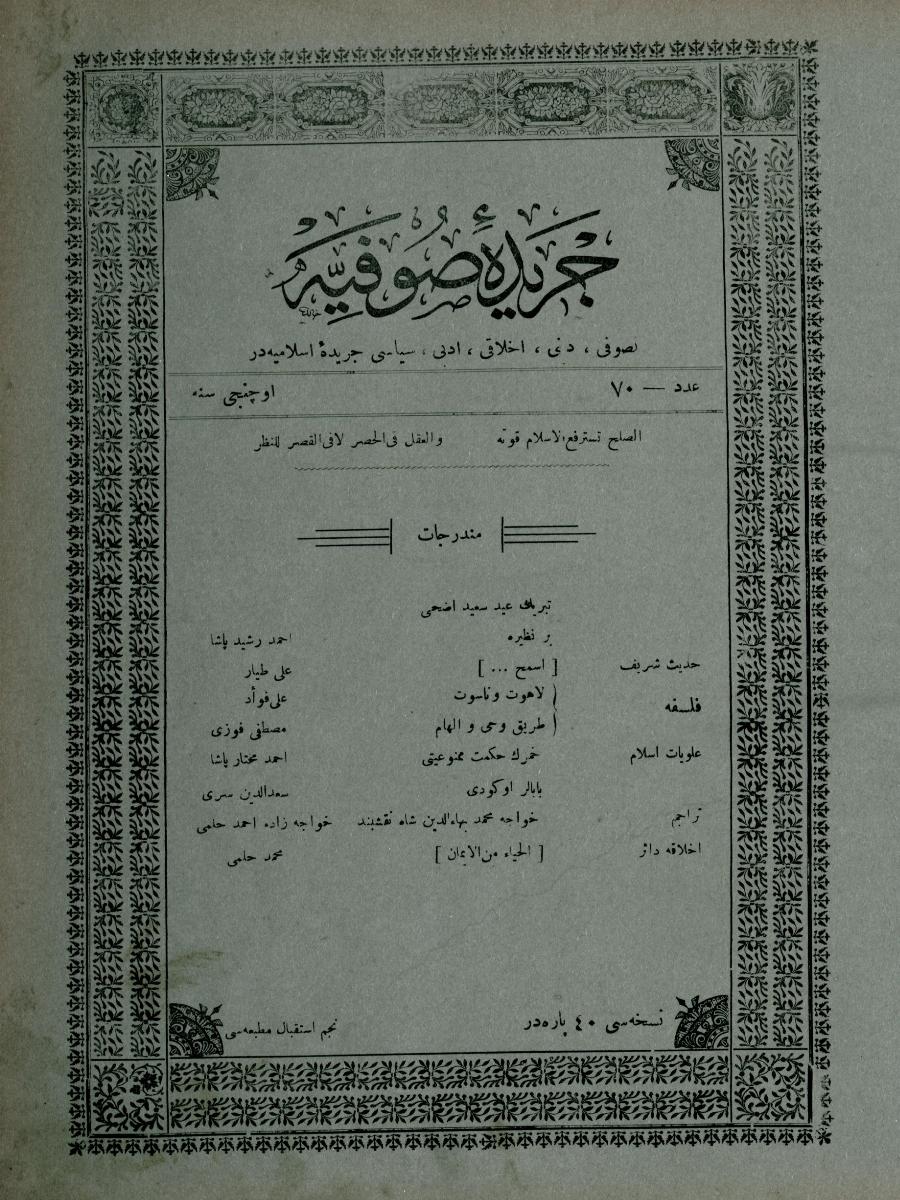 جريدۀ صوفيه
تصوفى ، دينى ، اخلاقى ، ادبى ، سياسى جريدۀ اسلاميه‌در
عدد — ٧٠ اوچنجى سنه
الصلح تسترفع الاسلام قوته والعقل فى الحصر لا فى القصر للنظر
مندرجات
تبريك عيد سعيد اضحى
بر نظيره احمد رشيد پاشا
حديث شريف [ اسمح ... ] على طيار
فلسفه
لاهوت و ناسوت على فوأد
طريق وحى و الهام مصطفى فوزى
علويات اسلام خمرك حكمت ممنوعيتى احمد مختار پاشا
بابالر اوكودى سعدالدين سرى
تراجم خواجه محمد بهاءالدين شاه نقشبند خواجه زاده احمد حلمى
اخلاقه دائر [ الحياء من الايمان ] محمد حلمى
نسخه‌سى ٤٠ پاره‌در نجم استقبال مطبعه‌سى